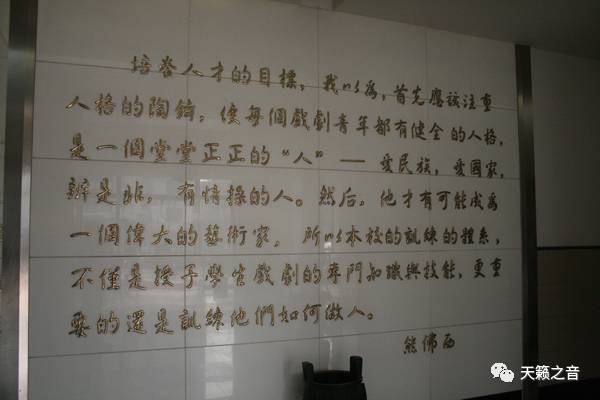 培养人才的目標，我以為，首先應該注重
人格的陶鑄，使每個戲劇青年都有健全的人格，
是一個堂堂正正的“人”——愛民族，愛國家，
辨是非，有情操的人。然后，他才有可能成為
一個偉大的藝術家，所以本校的訓練的體系，
不僅是授予學生戲劇的專門知識與技能，更重
要的還是訓練他們如何做人。
熊佛西
天籁之音